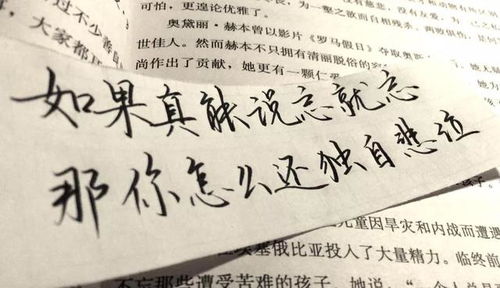 可怕，更遑论优雅了。
奥黛丽·赫本曾以影片《罗马假日》夺取奥斯
大家都
世佳人。然而赫本不只拥有清丽脱俗的
尚作出了贡献，她更有一颗仁
如果真能说忘就忘
那你怎么还独自悲泣
儿童因旱灾和内战而遭遇
埃塞俄比亚投入了大量精力。临终前
不忘那些遭受苦难的孩子，她说：“一个人总